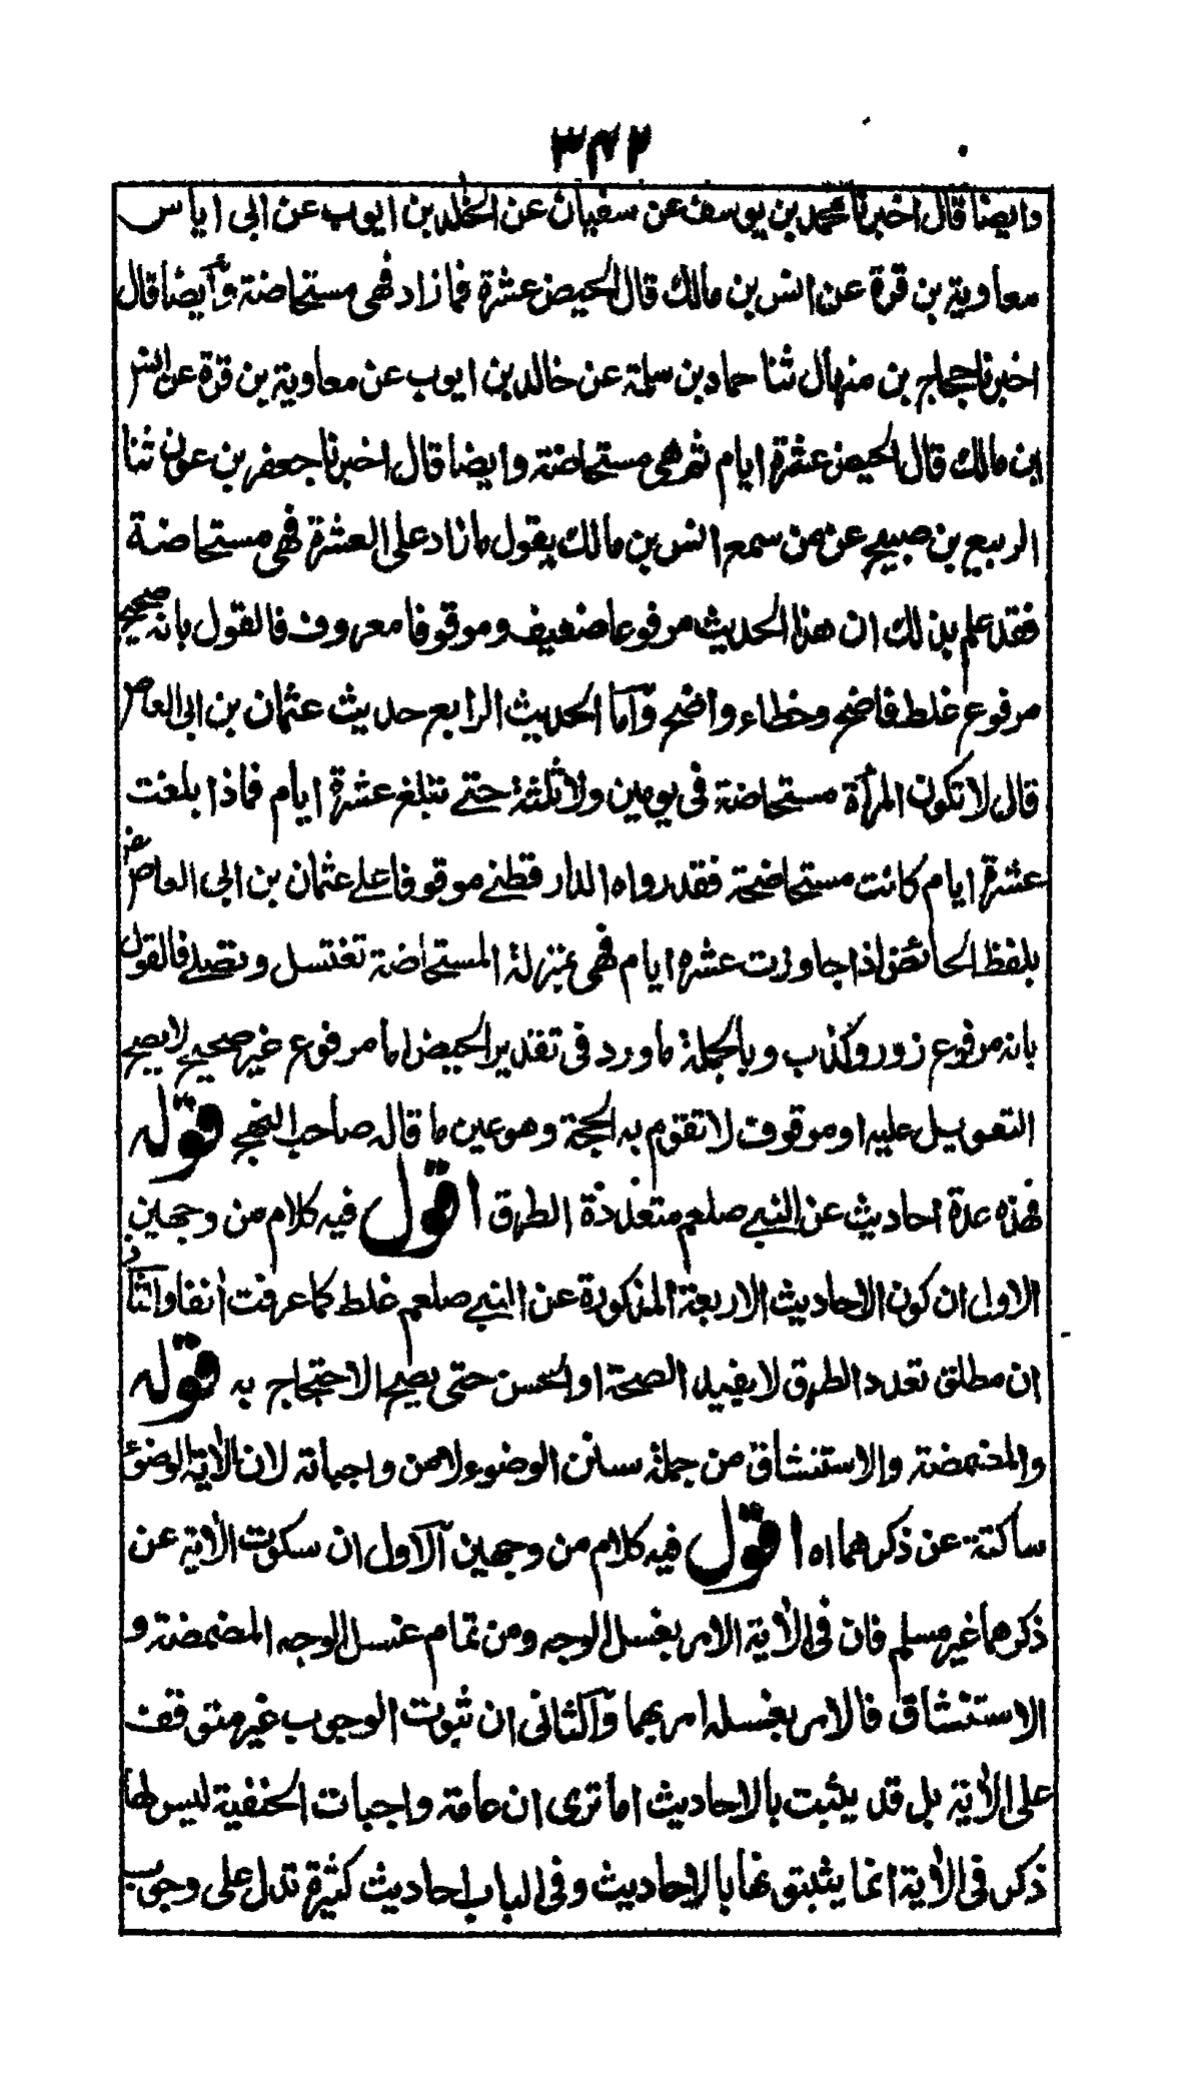 ٣٤٢
وايضا قال اخبرنا محمد بن يوسف عن سفيان عن الخلد بن ايوب عن ابى اياس
معاوية بن قرة عن انس بن مالك قال الحيض عشرة فما زاد فهى مستحاضة وآيضا قال
اخبرنا حجاج بن منهال ثنا حماد بن سلمة عن خالد بن ايوب عن معاوية بن قرة عن انس
ابن مالك قال الحيض عشرة ايام ثم هى مستحاضة وايضا قال اخبرنا جعفر بن عون ثنا
الربيع بن صبيح عن من سمع انس بن مالك يقول ما زاد على العشرة فهى مستحاضة
فقد علم بذلك ان هذا الحديث مرفوعا ضعيف وموقوفا معروف فالقول بانه صحيح
مرفوع غلط فاضح وخطاء واضح وآما الحديث الرابع حديث عثمان بن ابى العاص
قال لا تكون المرأة مستحاضة فى يومين ولا ثلثة حتے تبلغ عشرة ايام فاذا بلغت
عشرة ايام كانت مستحاضة فقد رواه الدار قطنے موقوفا علے عثمان بن ابى العاص رض
بلفظ الحائض اذا جاوزت عشرة ايام فهى بمنزلة المستحاضة تغتسل وتصلے فالقول
بانه مرفوع زور وكذب وبالجملة ما ورد فى تقدير الحيض اما مرفوع غير صحيح لا يصح
التعويل عليه او موقوف لا تقوم به الحجة وهو عين ما قاله صاحب النهج قوله
فهذه عدة احاديث عن النبے صلعم متعددة الطرق اقول فيه كلام من وجهين
الاول ان كون الاحاديث الاربعة المذكورة عن النبے صلعم غلط كما عرفت انفا والثانى
ان مطلق تعدد الطرق لا يفيد الصحة او الحسن حتى يصح الاحتجاج به قوله
والمضمضة والاستنشاق من جملة سنن الوضوء لا من واجباته لان الآية الوضوء
ساكتة عن ذكرهما اه اقول فيه كلام من وجهين آلاول ان سكوت الآية عن
ذكرهما غير مسلم فان فى الآية الامر بغسل الوجه ومن تمام غسل الوجه المضمضة و
الاستنشاق فالامر بغسله امر بهما وآلثانى ان ثبوت الوجوب غير متوقف
على الآية بل قد يثبت بالاحاديث اما ترى ان عامة واجبات الحنفية ليس لها
ذكر فى الآية انما يثبتونها بالاحاديث وفى الباب احاديث كثيرة تدل على وجوب